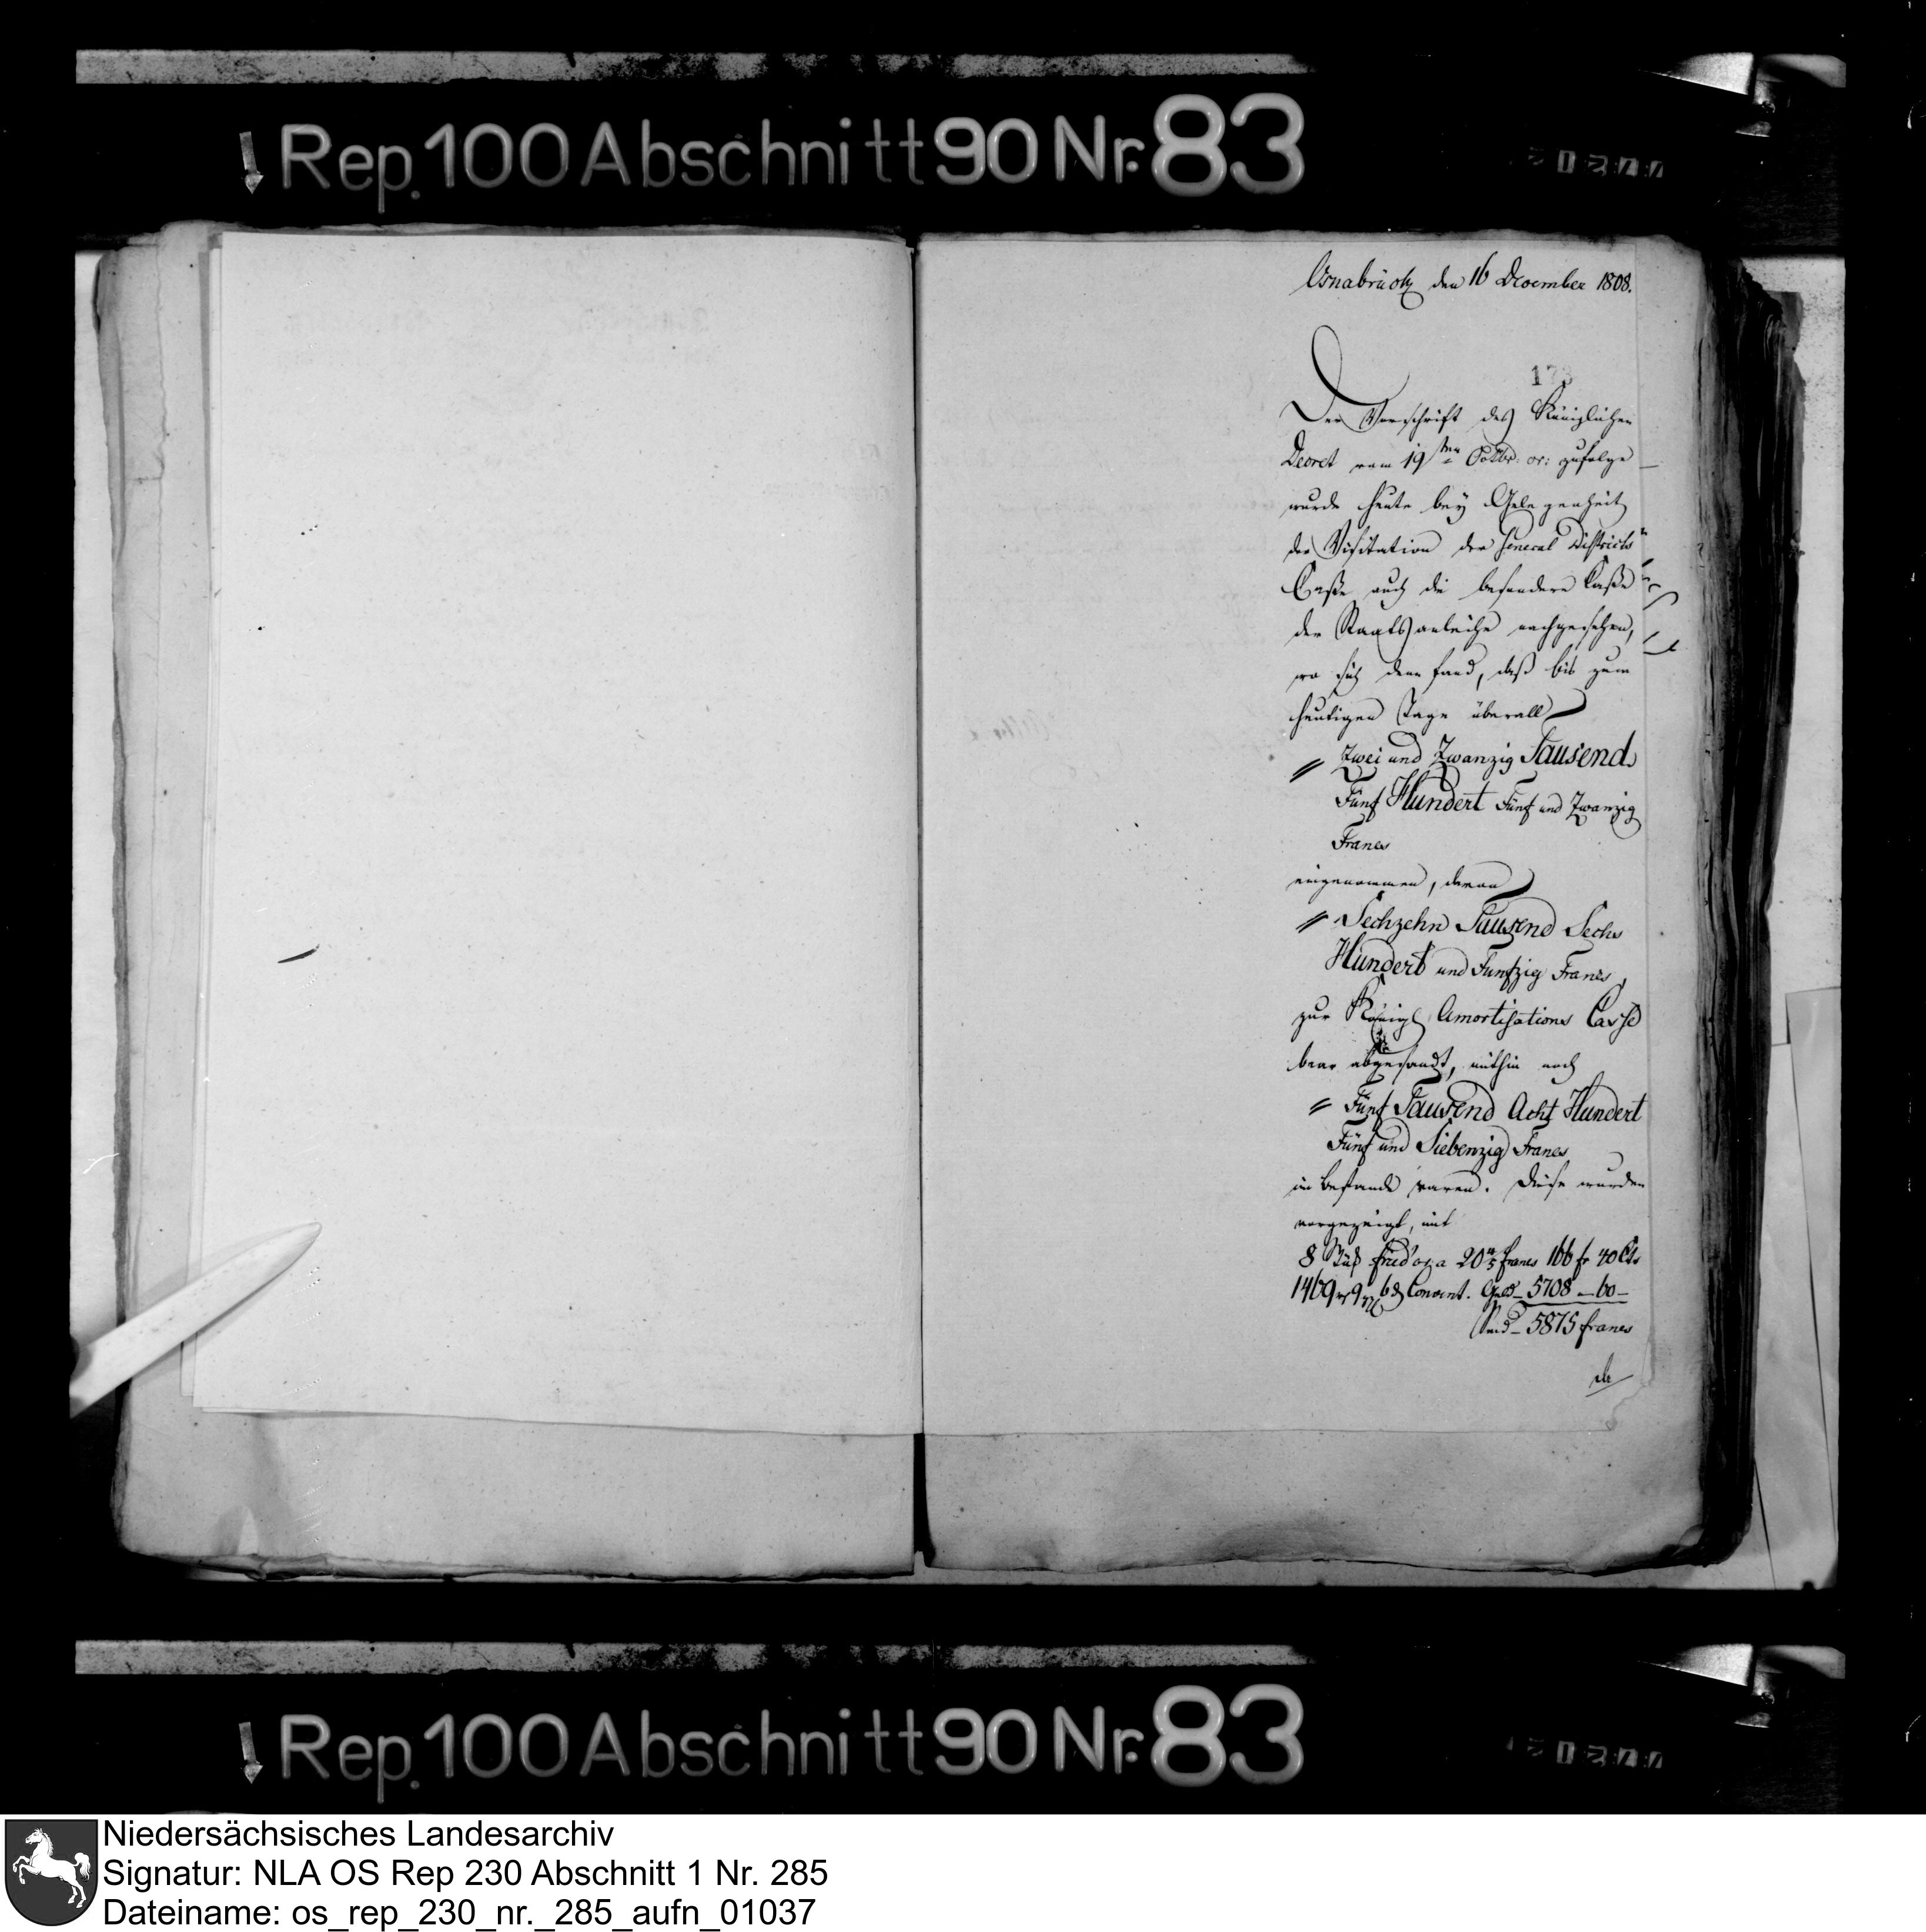 Rep. 100 Abschnitt 90 Nr. 83
Osnabrück den 16 December 1808.
173
Der Vorschrift des Königlichen
Decret vom 19ten Octbr: cr: zufolge
wurde heute bey Gelegenheit
der Visitation der General Districts
Casse auch die besondere Casse
der Staatsanleihe nachgesehen,
wo sich denn fand, daß bis zum
heutigen Tage überall
Zwei und Zwanzig Tausend
Fünf Hundert Fünf und Zwanzig
Francs
eingenommen, davon
Sechzehn Tausend Sechs
Hundert und Funfzig Francs,
zur Königl Amortisations Casse
baar abgesandt, mithin noch
Fünf Tausend Acht Hundert
Fünf und Siebenzig Francs
in Bestande waren. Diese wurden
vorgezeigt, mit
8 Stück fried'or a 20 4/5 francs 166 fr 40 Cts
1469 9 6 Convent. Geld — 5708 — 60 —
Sind — 5875 francs
Rep. 100 Abschnitt 90 Nr. 83
Niedersächsisches Landesarchiv
Signatur: NLA OS Rep 230 Abschnitt 1 Nr. 285
Dateiname: os_rep_230_nr._285_aufn_01037